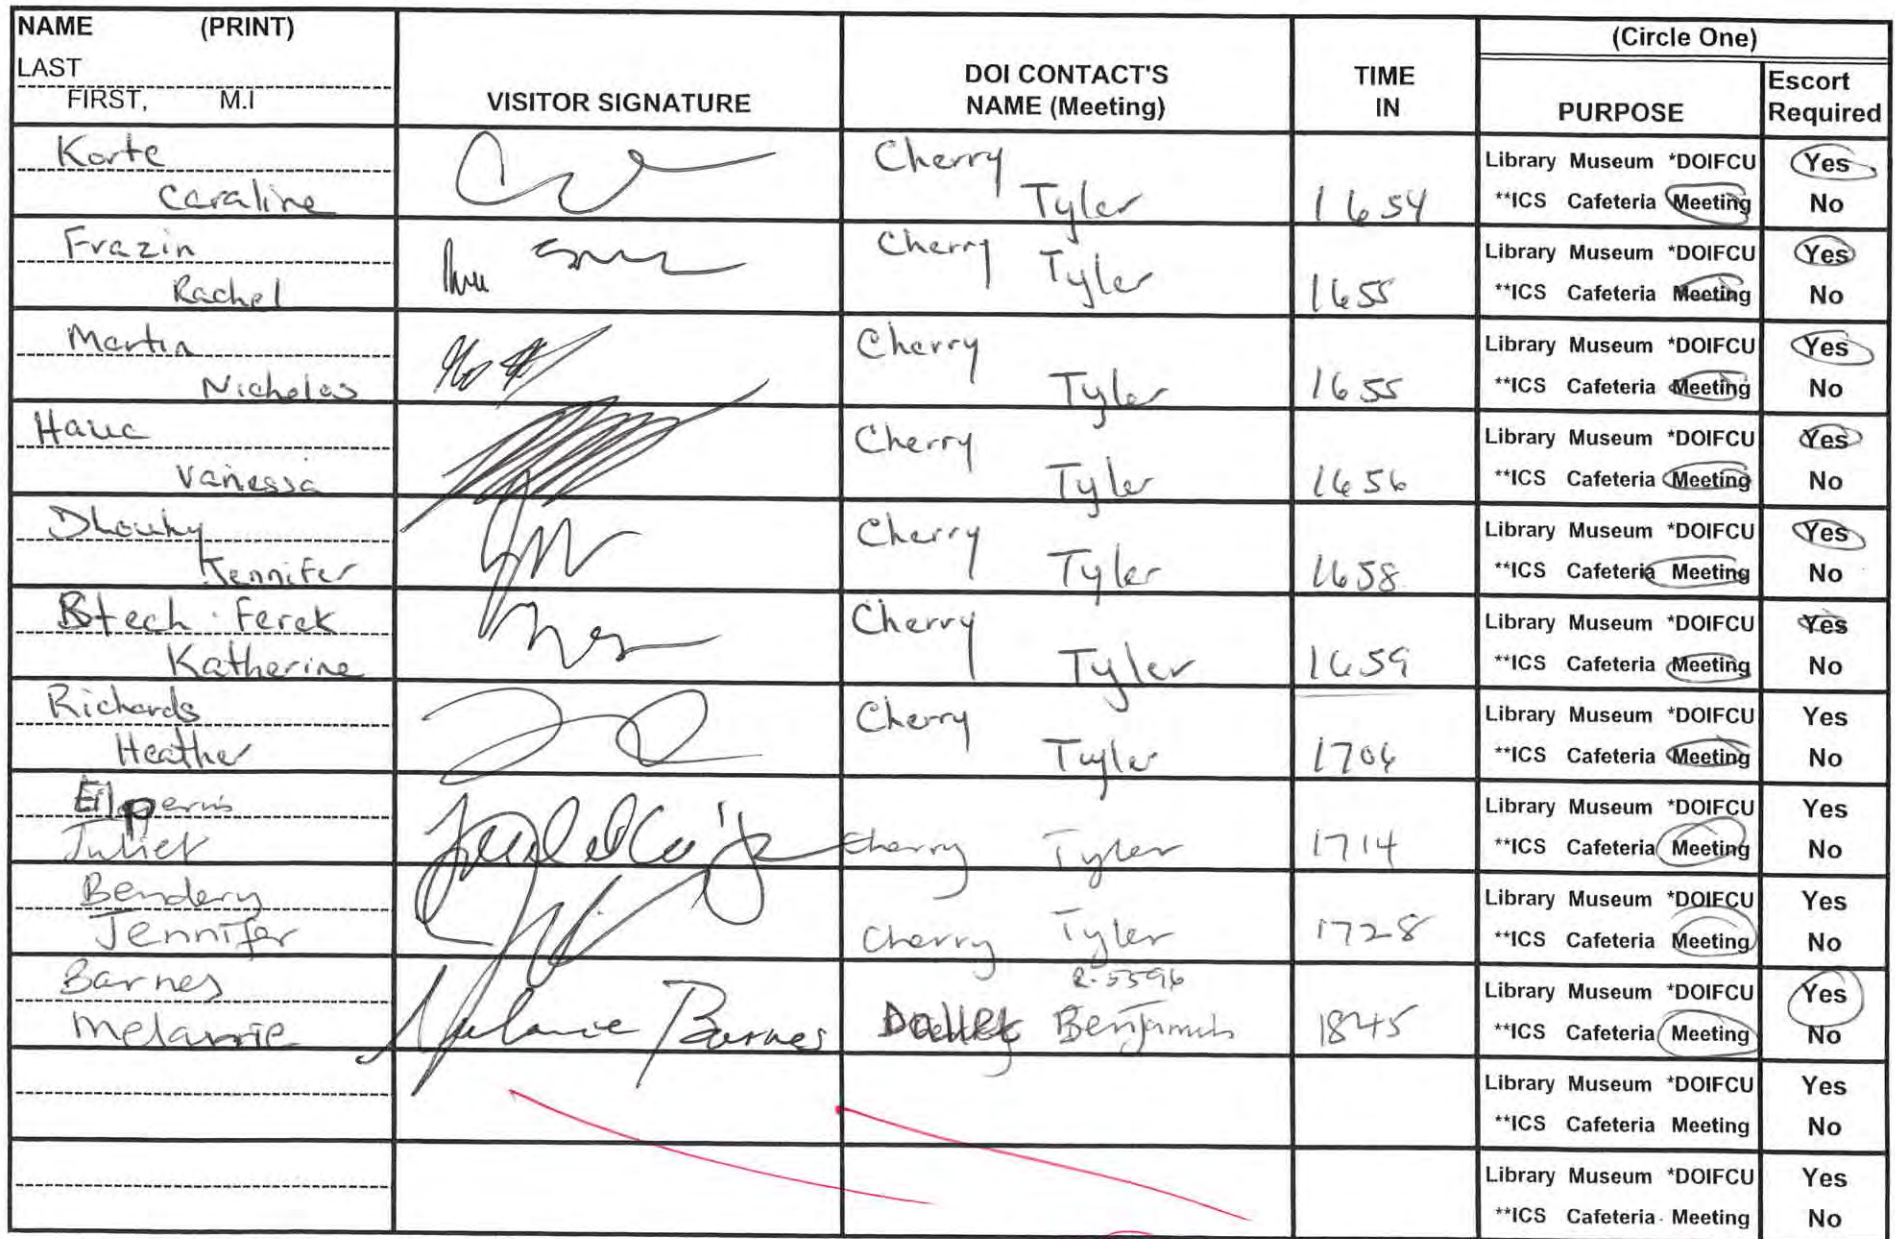 NAME (PRINT)
LAST
FIRST, M.I
VISITOR SIGNATURE
DOI CONTACT'S
NAME (Meeting)
TIME
IN
(Circle One)
PURPOSE
Escort
Required
Korte
Caraline
Cherry
Tyler
1654
Library Museum *DOIFCU Yes
**ICS Cafeteria Meeting No
Frazin
Rachel
Cherry
Tyler
1655
Library Museum *DOIFCU Yes
**ICS Cafeteria Meeting No
Martin
Nicholas
Cherry
Tyler
1655
Library Museum *DOIFCU Yes
**ICS Cafeteria Meeting No
Hauc
Vanessa
Cherry
Tyler
1656
Library Museum *DOIFCU Yes
**ICS Cafeteria Meeting No
Dlouhy
Jennifer
Cherry
Tyler
1658
Library Museum *DOIFCU Yes
**ICS Cafeteria Meeting No
Btech-Ferek
Katherine
Cherry
Tyler
1659
Library Museum *DOIFCU Yes
**ICS Cafeteria Meeting No
Richards
Heather
Cherry
Tyler
1706
Library Museum *DOIFCU Yes
**ICS Cafeteria Meeting No
Eilperin
Juliet
Cherry Tyler
1714
Library Museum *DOIFCU Yes
**ICS Cafeteria Meeting No
Bendery
Jennifer
Cherry Tyler
1728
Library Museum *DOIFCU Yes
**ICS Cafeteria Meeting No
Barnes
Melannie
Melanie Barnes
2-5596
Benjamin
1845
Library Museum *DOIFCU Yes
**ICS Cafeteria Meeting No
Library Museum *DOIFCU Yes
**ICS Cafeteria Meeting No
Library Museum *DOIFCU Yes
**ICS Cafeteria Meeting No